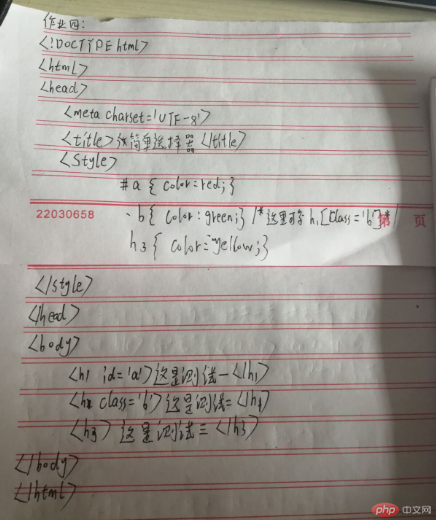 作业四:
<!DOCTYPE html>
<html>
<head>
<meta charset='UTF-8'>
<title>简单选择器</title>
<style>
#a { color:red;}
22030658 .b{ color:green;} /*这里可 h1[class='b'] 第 页
h3{ color:yellow;}
</style>
</head>
<body>
<h1 id='a'>这是测试一</h1>
<h1 class='b'>这是测试二</h1>
<h3>这是测试三</h3>
</body>
</html>
php 中文网